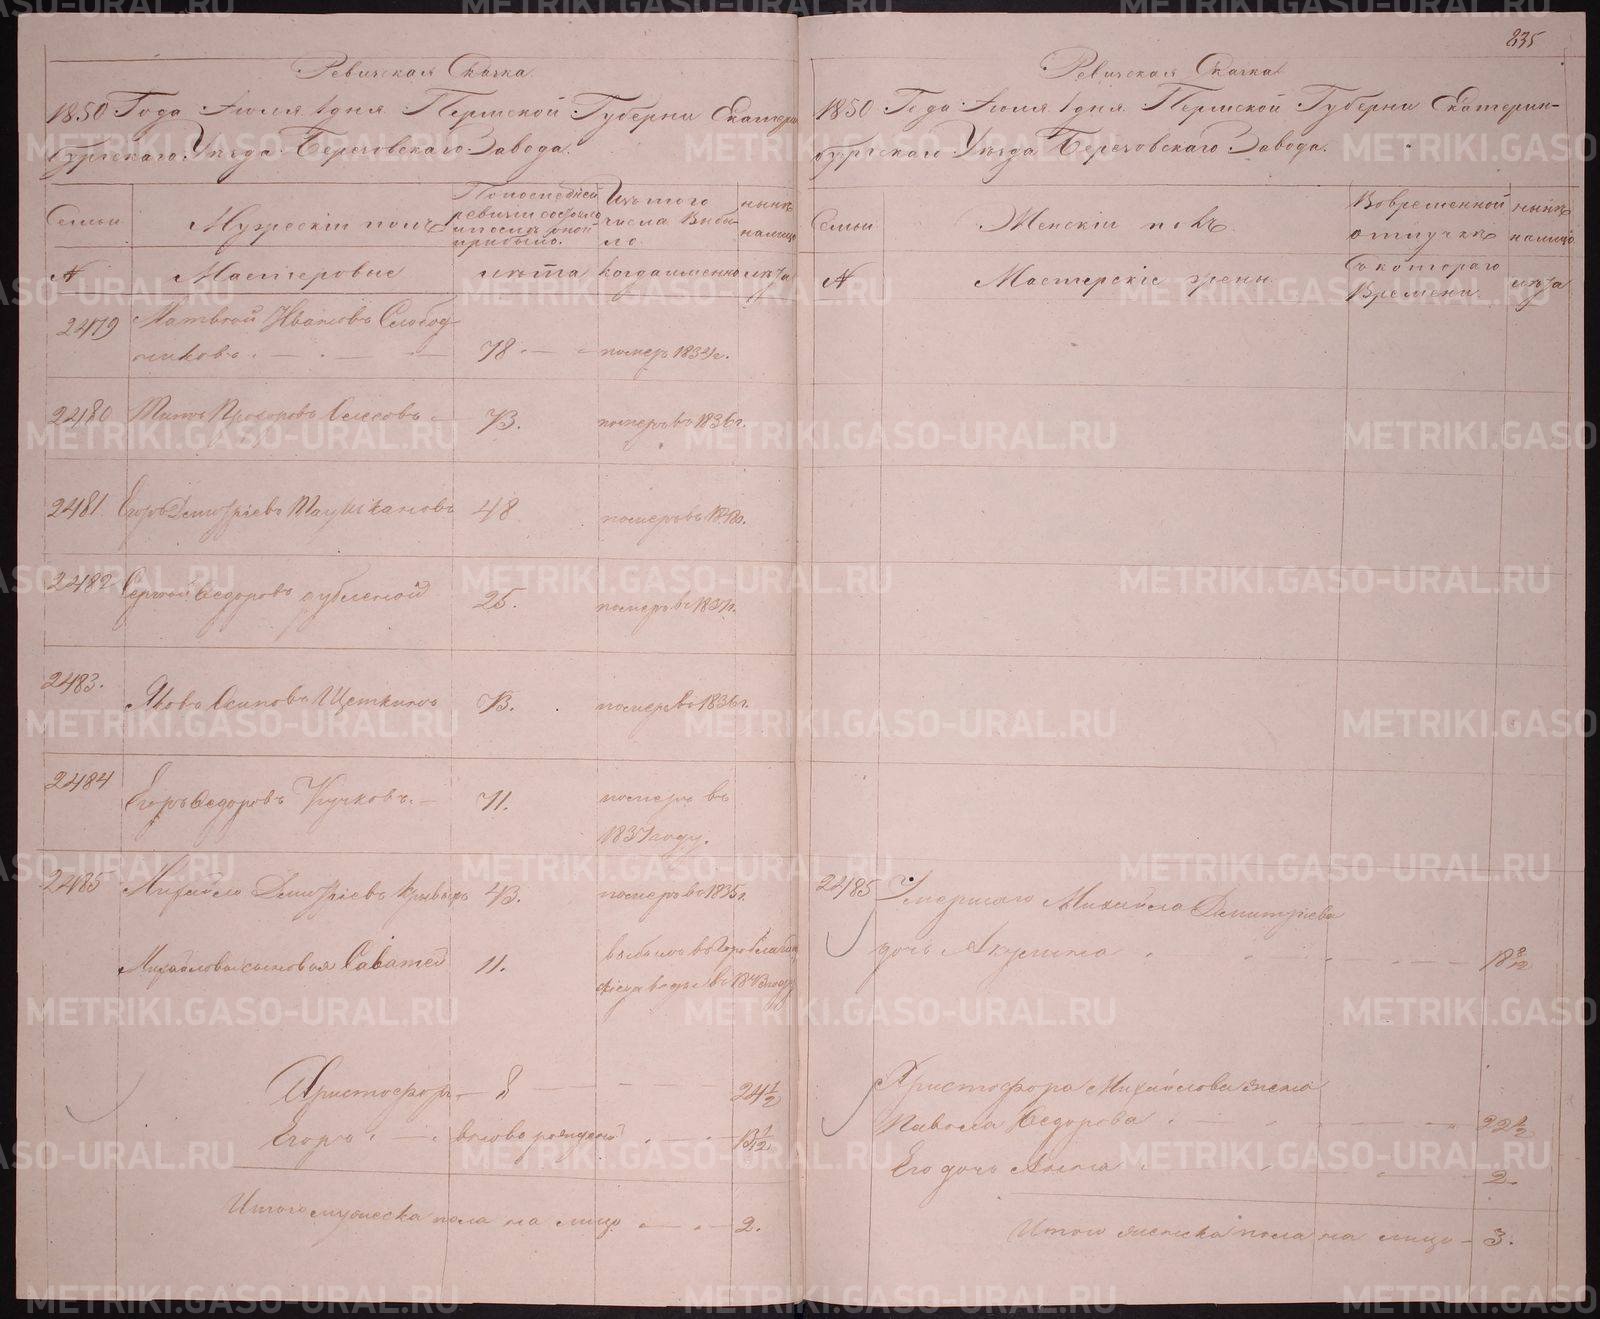 835
Ревизская Сказка
1850 Года Июля 1 дня Пермской Губерни Екатерин
бургскаго Уѣзда Березовскаго Завода.
Семьи
Мужескій полъ
По последней ревизіи состояло и после оной прибыло.
Изъ того числа Выбыло
нынѣ налицо
№
Мастеровые
лѣта
когда именно
лѣта
2479
Матвѣй Ивановъ Слобод-
чиковъ
78
померъ 1834 г.
2480
Титъ Прохоровъ
73.
померъ въ 1836 г.
2481
Егоръ Дмитріевъ
48
померъ въ
2482
Сергѣй Ѳедоровъ
25.
померъ въ 1837 г.
2483.
Яковъ Осиповъ Щеткинъ
73.
померъ въ 1836 г.
2484
Егоръ Ѳедоровъ
71.
померъ въ
1837 году.
2485
Михайло Дмитріевъ
43.
померъ въ 1835 г.
Михайловы сыновья Саватей
11.
выбылъ въ
заводъ въ 1843 году
Христофоръ
8
24 1/2
Егоръ
вновь рожденъ
13 1/2
Итого мужеска пола на лицо
2.
Ревизская Сказка
1850 Года Июля 1 дня Пермской Губерни Екатерин-
бургскаго Уѣзда Березовскаго Завода.
Семьи
Женскій полъ
Во временной отлучкѣ
нынѣ налицо
№
Мастерскіе жены
Съ котораго Времени
лѣта
2485
Умершаго Михайла Дмитріева
дочь Акулина
18
Христофора Михайлова жена
Ѳедорова
22 1/2
Его дочь Анна
2
Итого женска пола на лицо
3.
METRIKI.GASO-URAL.RU